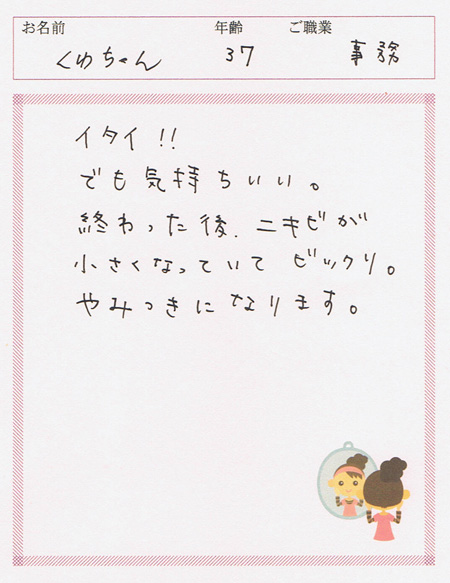 お名前 年齢 ご職業
くゆちゃん 37 事務
イタイ!!
でも気持ちいい。
終わった後、ニキビが
小さくなっていてビックリ。
やみつきになります。